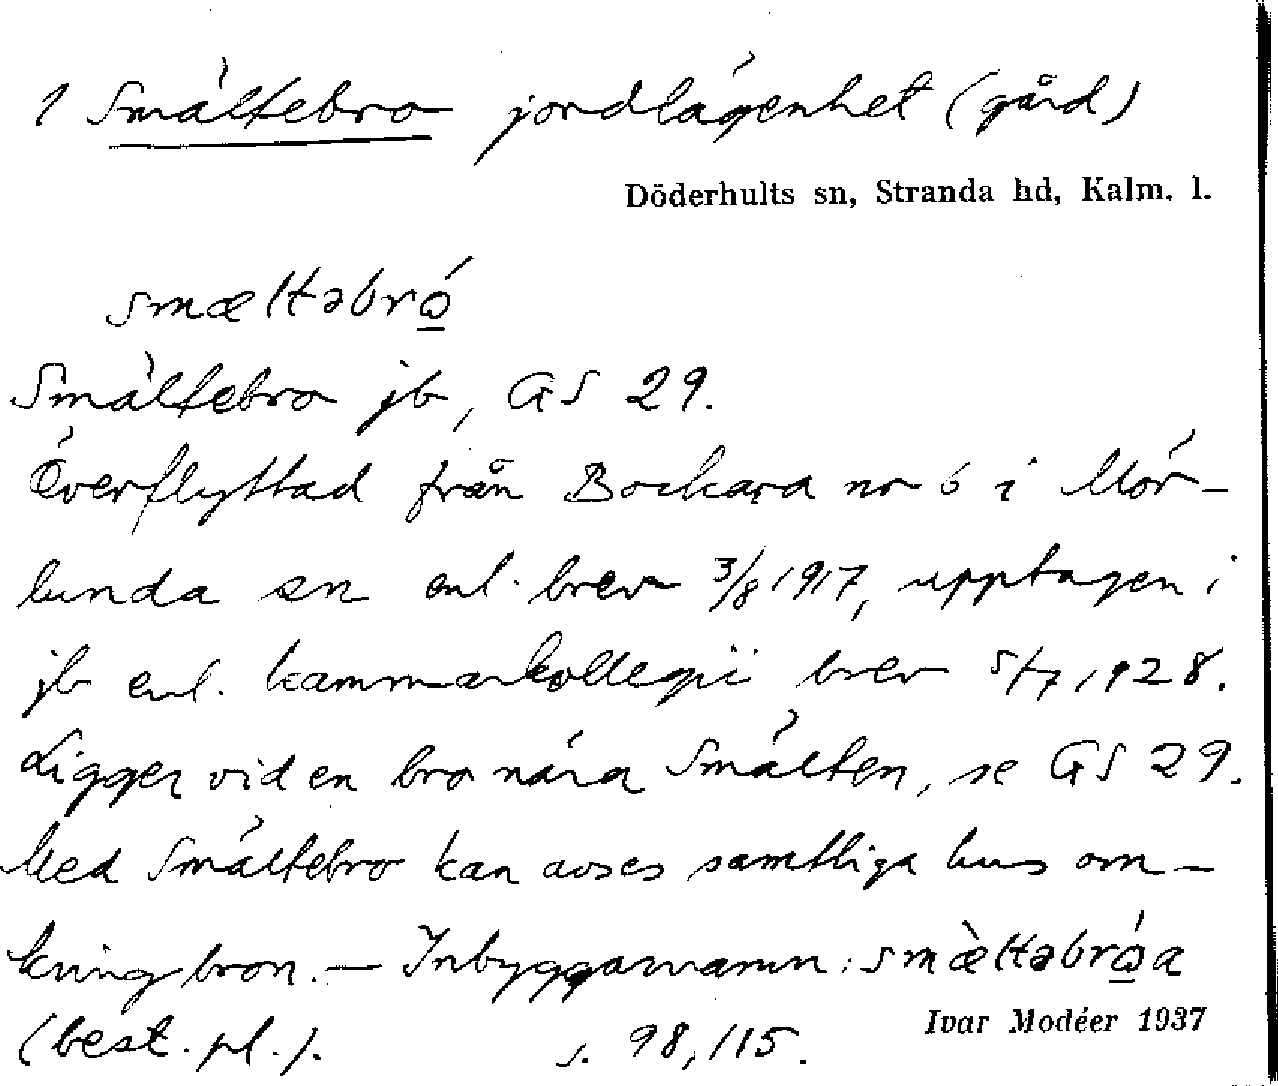 1 Smältebro jordlägenhet (gård)
Döderhults sn, Stranda hd, Kalm. l.
smæltəbró̱
Smältebro jb, GS 29.
Överflyttad från Bockara nr 6 i Mör-
lunda sn enl. brev 3/8 1917, upptagen i
jb enl. kammarkollegii brev 5/7 1928.
Ligger vid en bro nära Smälten, se GS 29.
Med Smältebro kan avses samtliga hus om-
kring bron. — Inbyggarnamn: smæ̀ltəbró̱a
(best. pl.). s. 98, 115.
Ivar Modéer 1937